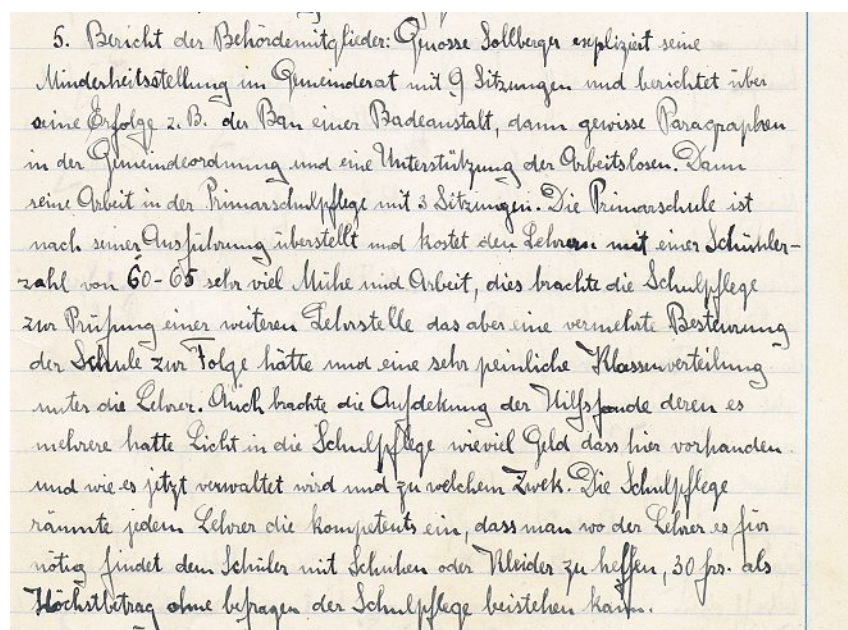 5. Bericht der Behördemitglieder: Genosse Sollberger expliziert seine
Minderheitsstellung im Gemeinderat mit 9 Sitzungen und berichtet über
seine Erfolge z. B. der Bau einer Badeanstalt, dann gewisse Paragraphen
in der Gemeindeordnung und eine Unterstützung der Arbeitslosen. Dann
seine Arbeit in der Primarschulpflege mit 3 Sitzungen. Die Primarschule ist
nach seiner Ausführung überstellt und kostet den Lehrern mit einer Schühler-
zahl von 60-65 sehr viel Mühe und Arbeit, dies brachte die Schulpflege
zur Prüfung einer weiteren Lehrstelle das aber eine vermehrte Besteurung
der Schule zur Folge hätte und eine sehr peinliche Klassenverteilung
unter die Lehrer. Auch brachte die Aufdekung der Hilfsfonde deren es
mehrere hatte Licht in die Schulpflege wieviel Geld dass hier vorhanden
und wie es jetzt verwaltet wird und zu welchem Zwek. Die Schulpflege
räumte jedem Lehrer die kompetents ein, dass man wo der Lehrer es für
nötig findet dem Schüler mit Schuhen oder Kleider zu helfen, 30 frs. als
Höchstbetrag ohne befragen der Schulpflege beistehen kann.